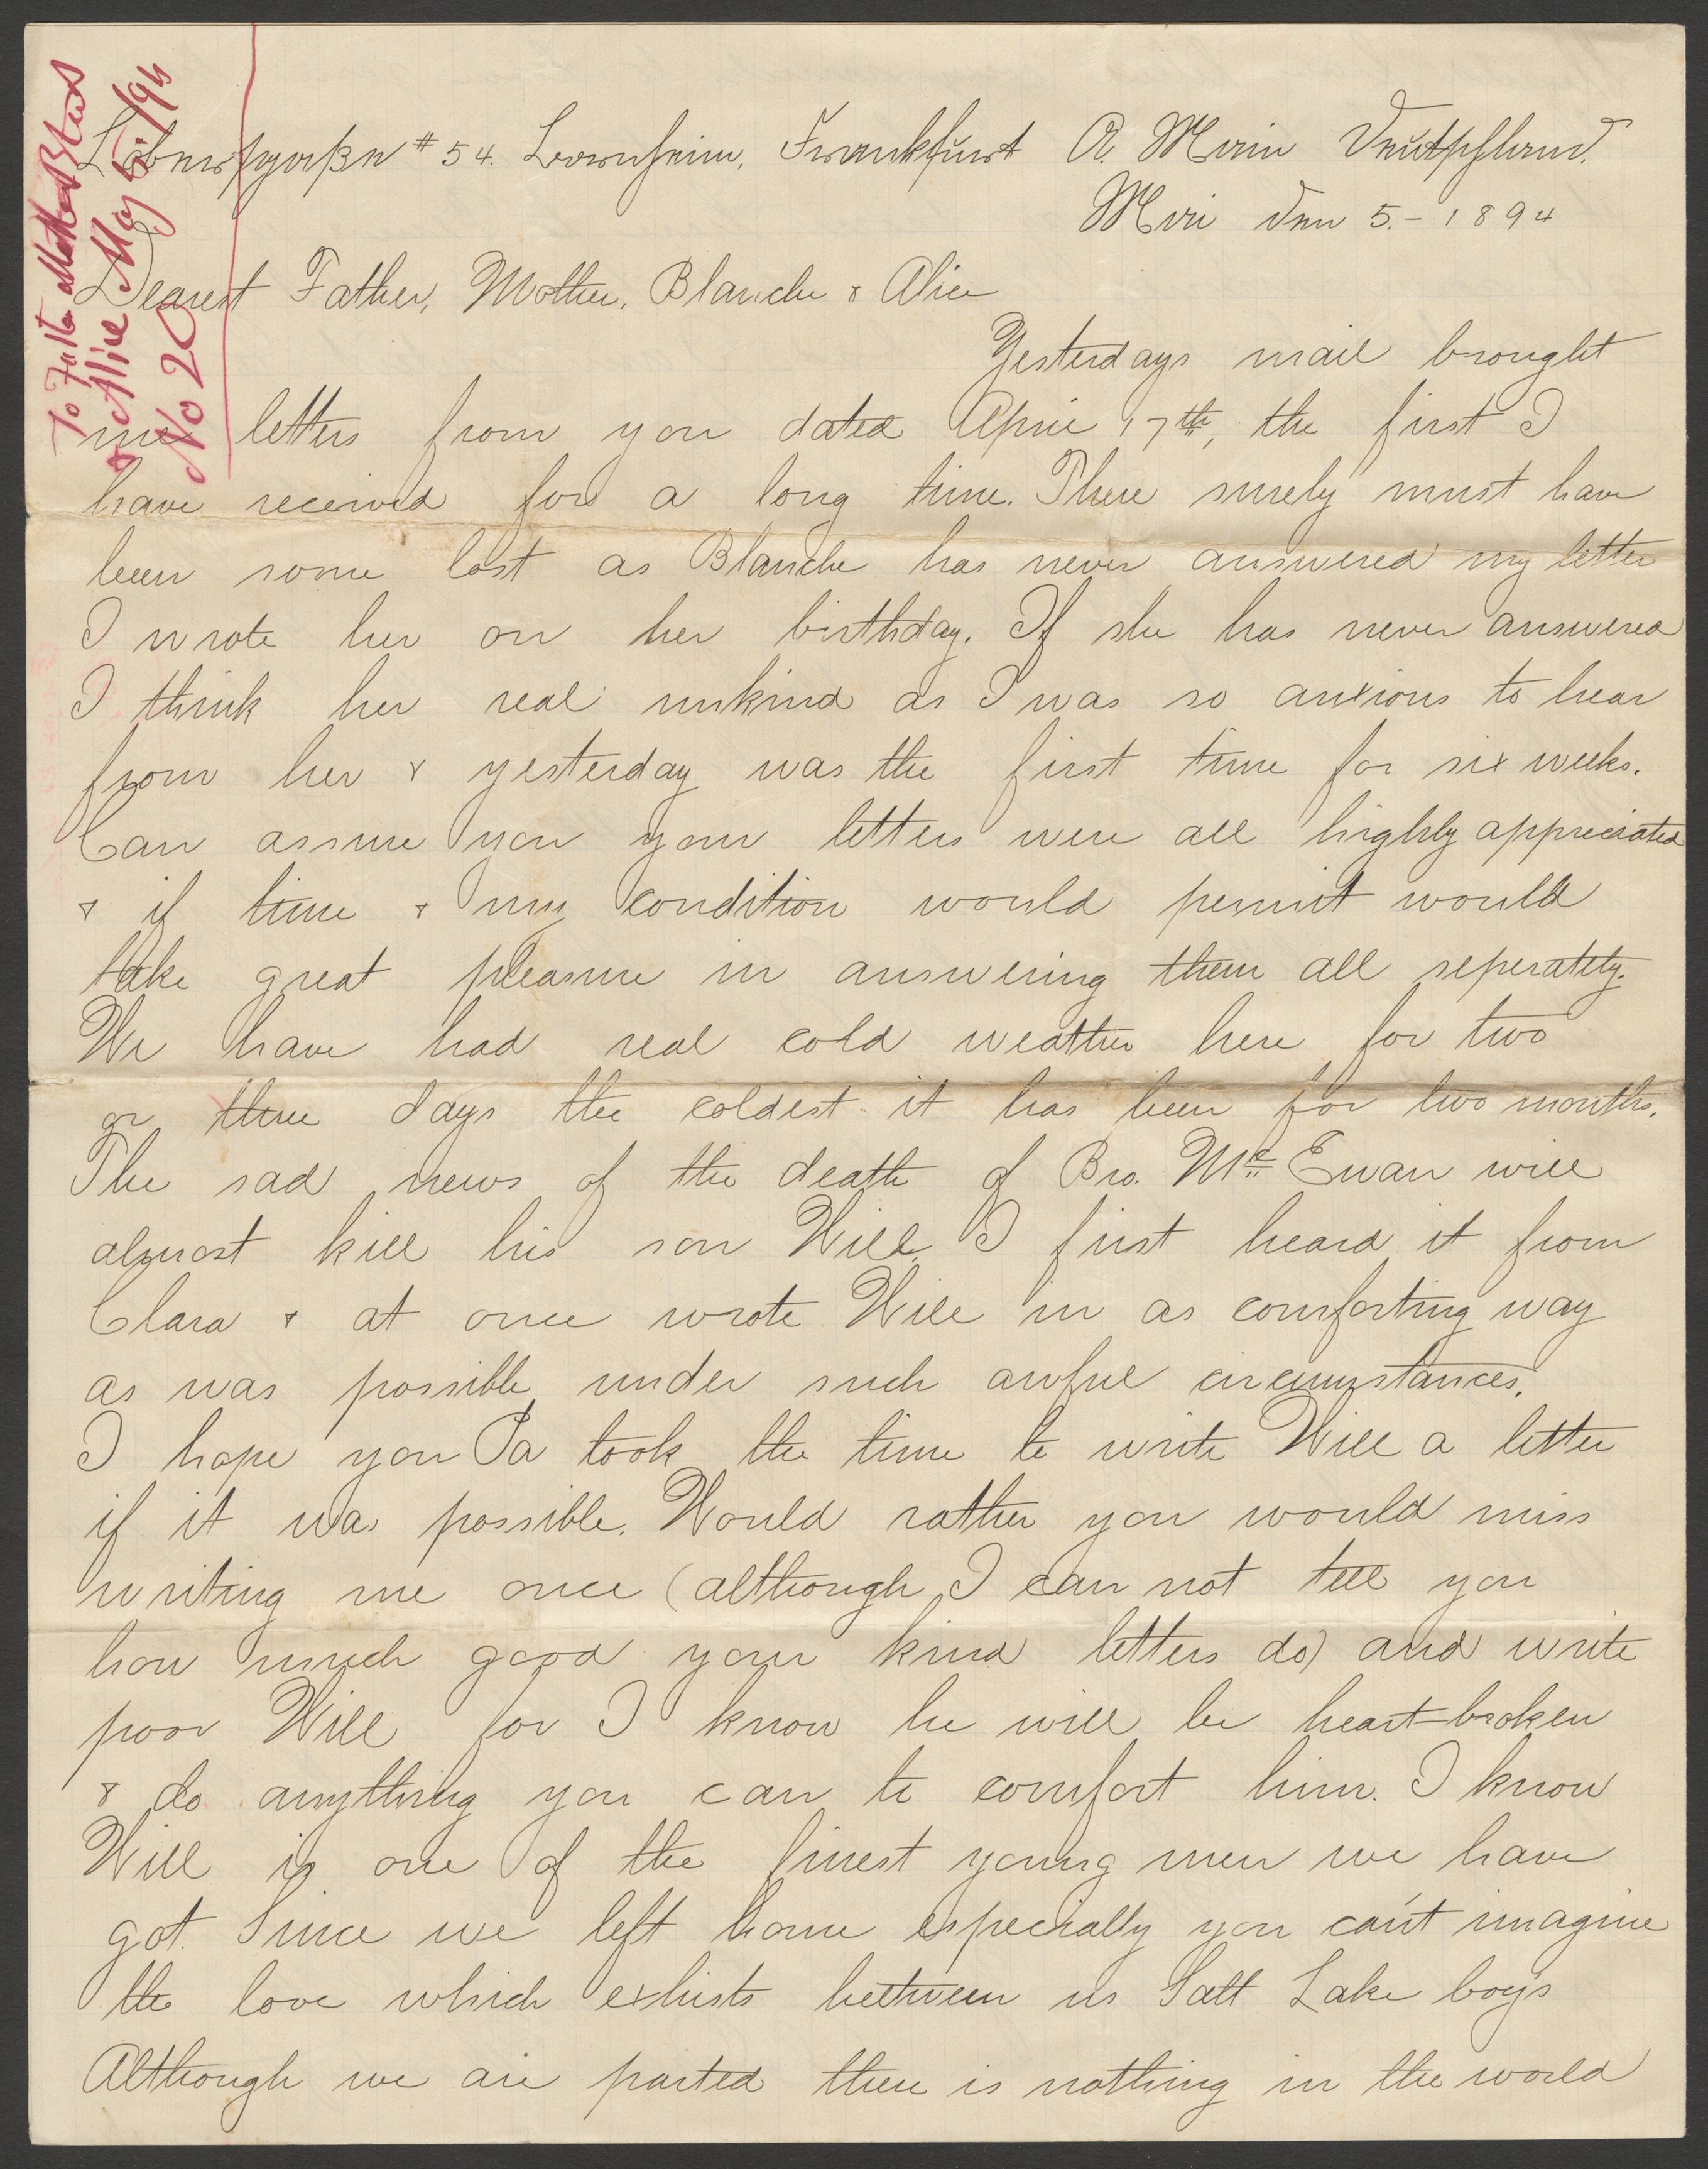 To Father Mother Blanch
& Alice May 5/94
No 20
#54. Bornheim, Frankfurt A. Main Deutschland.
Mai den 5.- 1894
Dearest Father, Mother, Blanche & Alice
Yesterdays mail brought
me letters from you dated April 17th, the first I
have received for a long time. There surely must have
been some lost as Blanche has never answered my letter
I wrote her on her birthday. If she has never answered
I think her real unkind as I was so anxious to hear
from her & yesterday was the first time for six weeks.
Can assure you your letters were all highly appreciated
& if time & my condition would permit would
take great pleasure in answering them all seperately.
We have had real cold weather here for two
or three days the coldest it has been for two months.
The sad news of the death of Bro. Mc Ewan will
almost kill his son Will. I first heard it from
Clara & at once wrote Will in as comforting way
as was possible under such awful circumstances.
I hope you Pa took the time to write Will a letter
if it was possible. Would rather you would miss
writing me once (although I can not tell you
how much good your kind letters do) and write
poor Will for I know he will be heart-broken
& do anything you can to comfort him. I know
Will is one of the finest young men we have
got. Since we left home especially you can't imagine
the love which exhists between us Salt Lake boys
Although we are parted there is nothing in the world